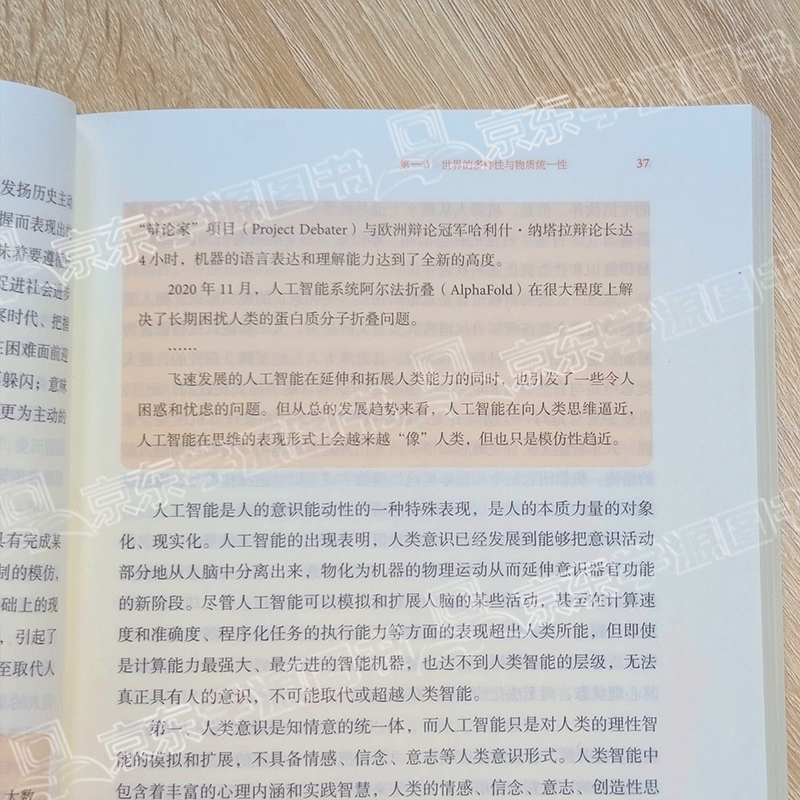 第一节 世界的多样性与物质统一性 37
“辩论家”项目（Project Debater）与欧洲辩论冠军哈利什·纳塔拉辩论长达
4 小时，机器的语言表达和理解能力达到了全新的高度。
2020 年 11 月，人工智能系统阿尔法折叠（AlphaFold）在很大程度上解
决了长期困扰人类的蛋白质分子折叠问题。
……
飞速发展的人工智能在延伸和拓展人类能力的同时，也引发了一些令人
困惑和忧虑的问题。但从总的发展趋势来看，人工智能在向人类思维逼近，
人工智能在思维的表现形式上会越来越“像”人类，但也只是模仿性趋近。
人工智能是人的意识能动性的一种特殊表现，是人的本质力量的对象
化、现实化。人工智能的出现表明，人类意识已经发展到能够把意识活动
部分地从人脑中分离出来，物化为机器的物理运动从而延伸意识器官功能
的新阶段。尽管人工智能可以模拟和扩展人脑的某些活动，甚至在计算速
度和准确度、程序化任务的执行能力等方面的表现超出人类所能，但即使
是计算能力最强大、最先进的智能机器，也达不到人类智能的层级，无法
真正具有人的意识，不可能取代或超越人类智能。
第一、人类意识是知情意的统一体，而人工智能只是对人类的理性智
能的模拟和扩展，不具备情感、信念、意志等人类意识形式。人类智能中
包含着丰富的心理内涵和实践智慧，人类的情感、信念、意志、创造性思
发扬历史主动
握而表现出的
味着要遵循
促进社会进步
察时代、把握
在困难面前迎
躲闪；意味
更为主动的
具有完成某
制的模仿，
础上的现
，引起了
至取代人
大数
京东学源图书